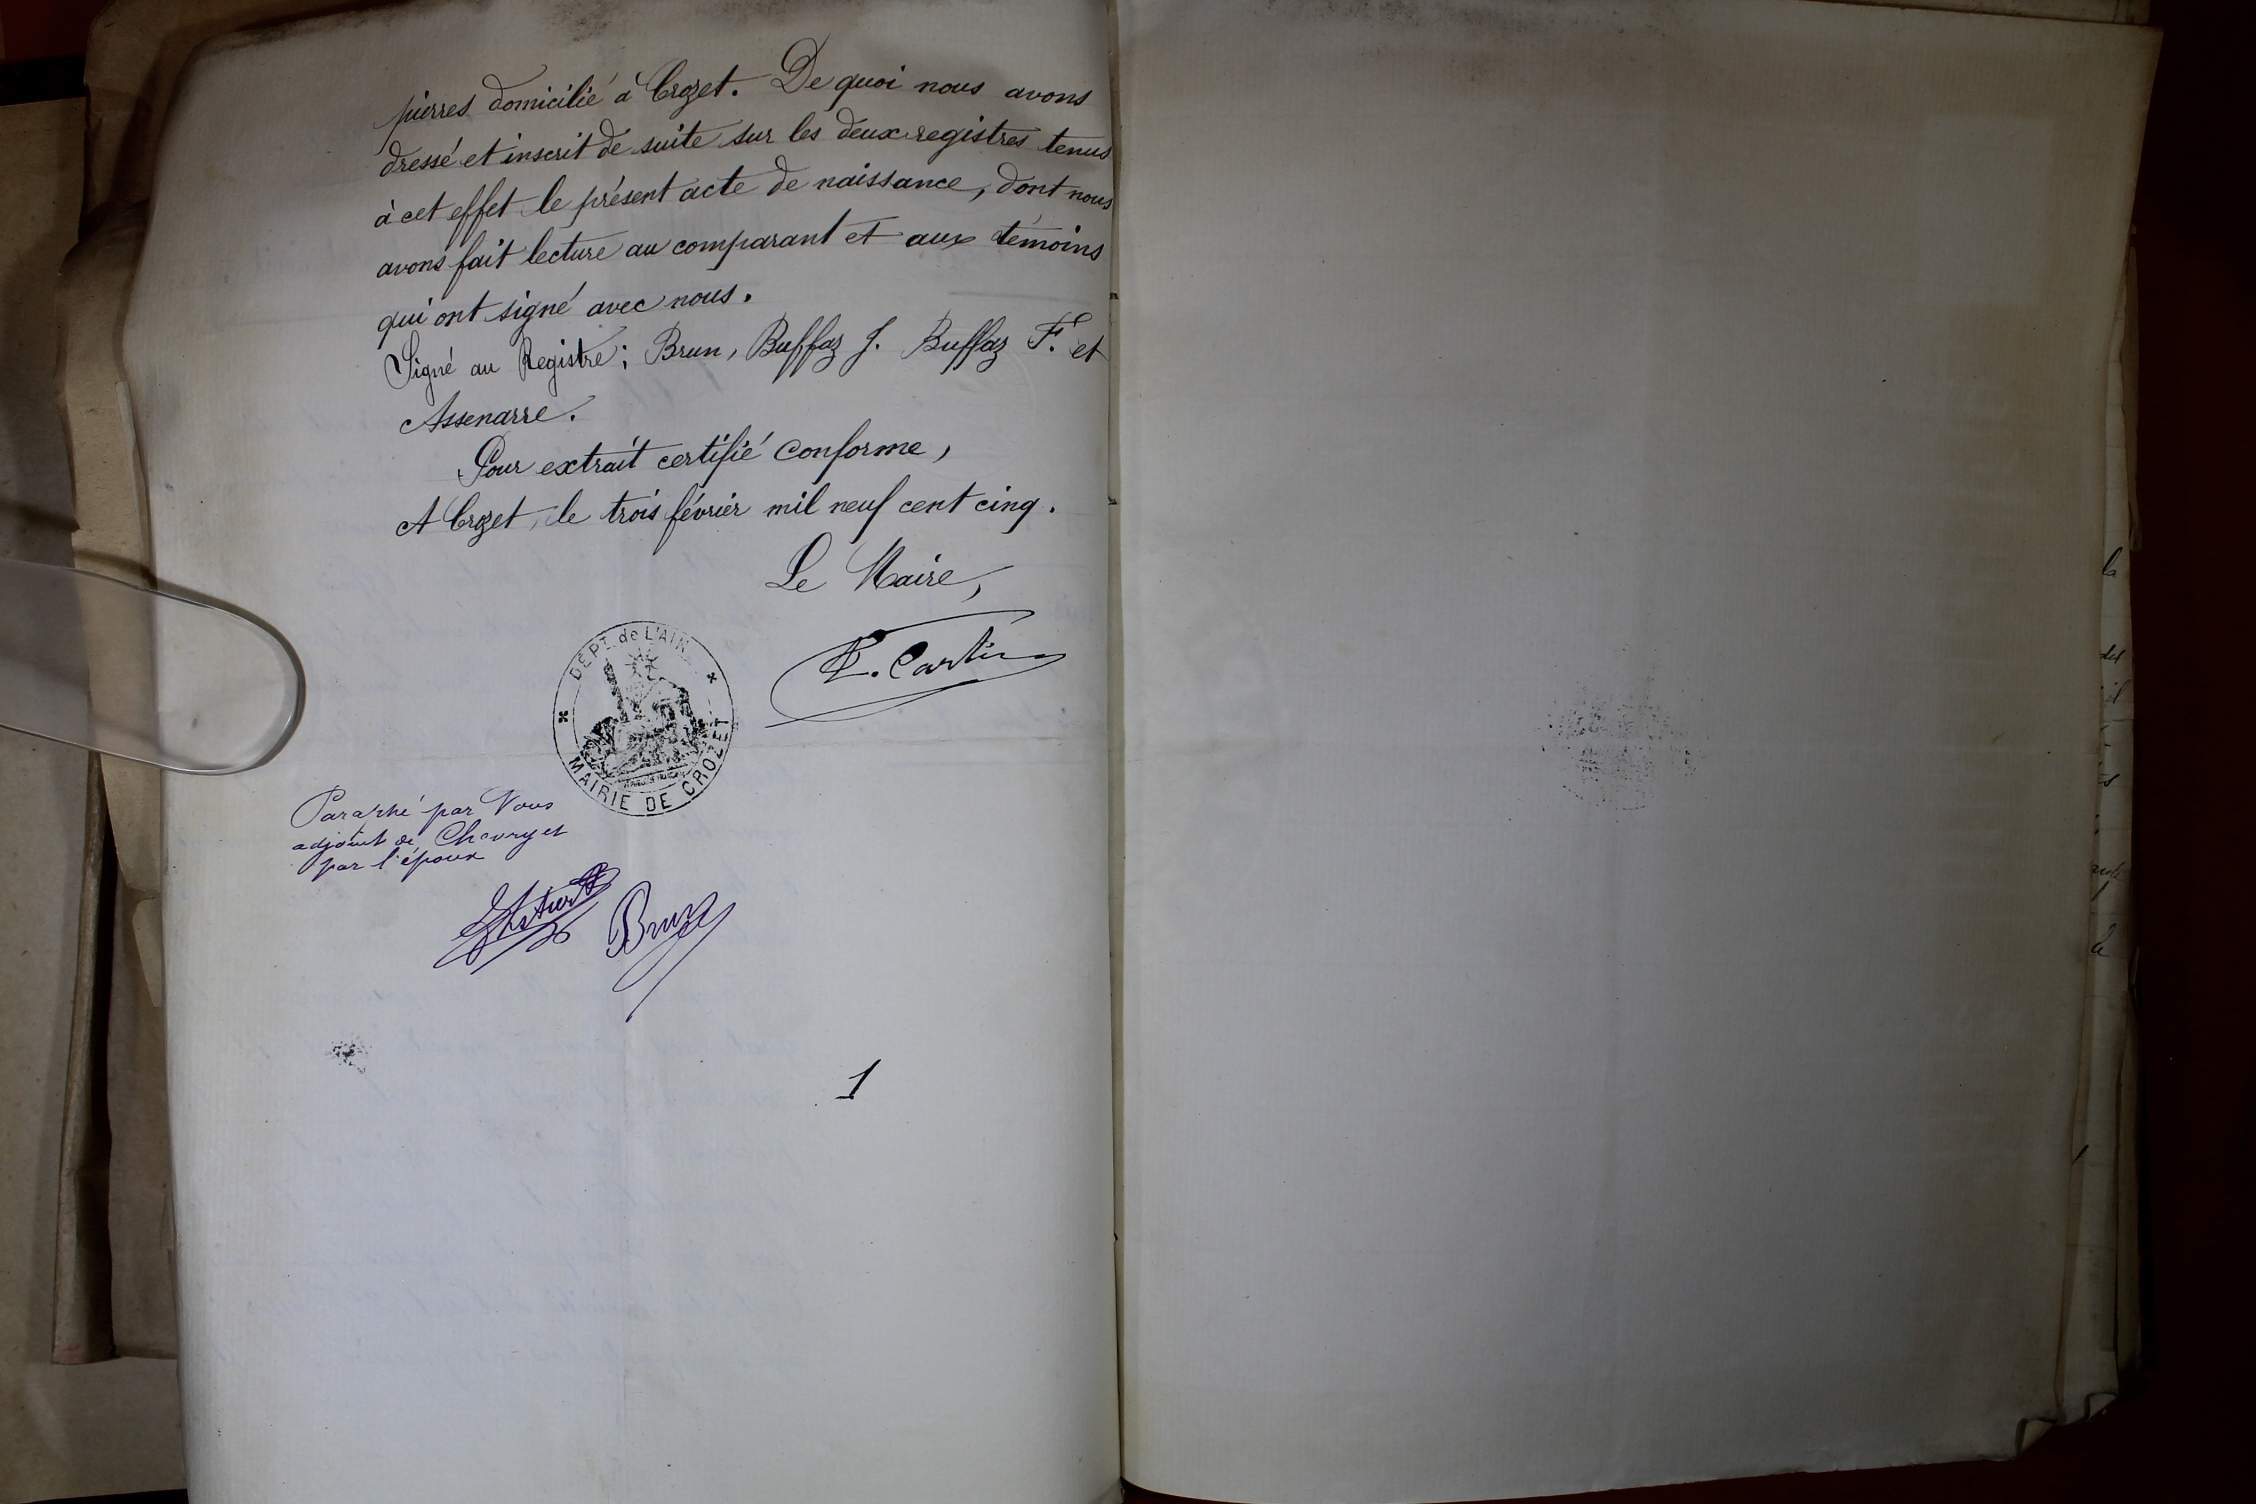 pierres domicilié à Crozet. De quoi nous avons
dressé et inscrit de suite sur les deux registres tenus
à cet effet le présent acte de naissance, dont nous
avons fait lecture au comparant et aux témoins
qui ont signé avec nous.
Signé au Registre; Brun, Buffaz J. Buffaz F. et
Assenarre.
Pour extrait certifié conforme,
A Crozet, le trois février mil neuf cent cinq.
Le Maire,
DÉPT. de L'AIN
MAIRIE DE CROZET
Paraphé par Nous
adjoint de Chevry et
par l'époux
Brun
1